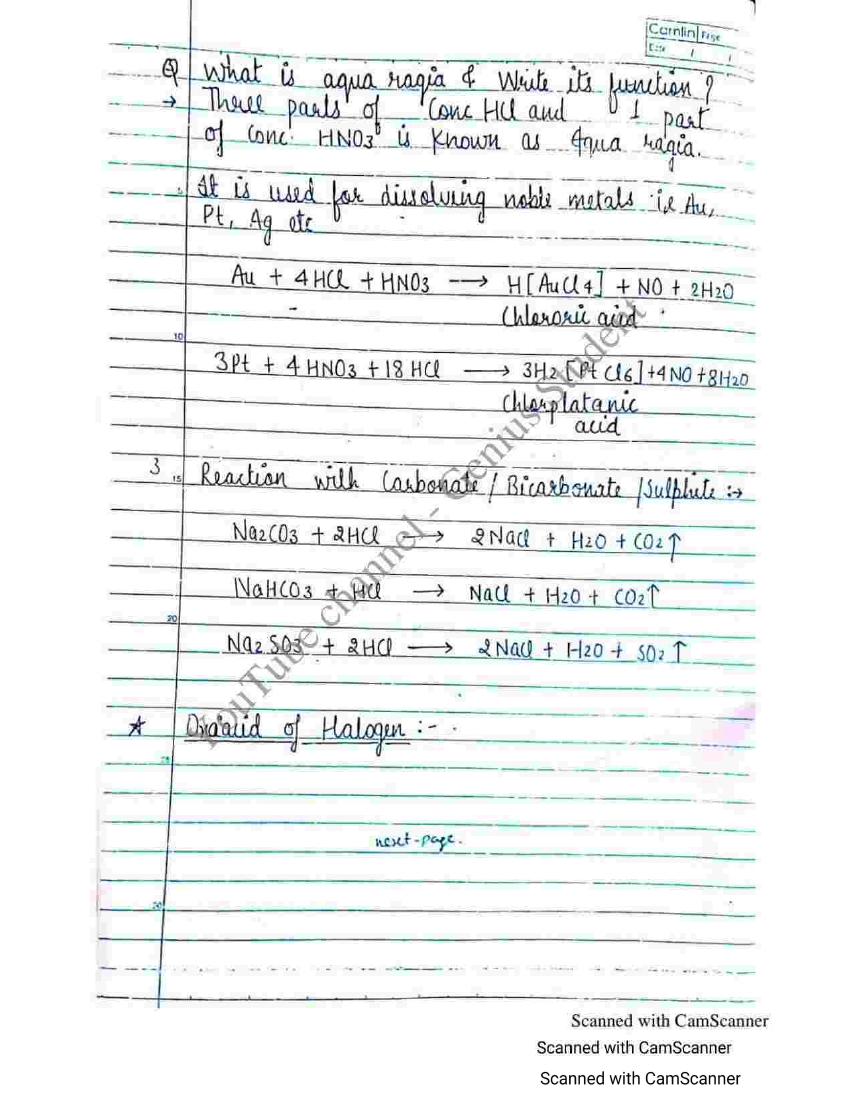 Camlin Page
Date / /
Q What is aqua ragia & Write its function?
→ Three parts of Conc HCl and 1 part
of Conc. HNO3 is known as Aqua ragia.
It is used for dissolving noble metals i.e Au,
Pt, Ag etc
Au + 4HCl + HNO3 → H[AuCl4] + NO + 2H2O
Chlororic acid
10
3Pt + 4HNO3 + 18HCl → 3H2[PtCl6]+4NO+8H2O
Chlorplatanic
acid
3 15 Reaction with Carbonate/Bicarbonate/Sulphite :→
Na2CO3 + 2HCl → 2NaCl + H2O + CO2↑
NaHCO3 + HCl → NaCl + H2O + CO2↑
20
Na2SO3 + 2HCl → 2NaCl + H2O + SO2↑
YouTube channel - Genius Student
★ Oxoacid of Halogen :-
25
next-page.
30
Scanned with CamScanner
Scanned with CamScanner
Scanned with CamScanner